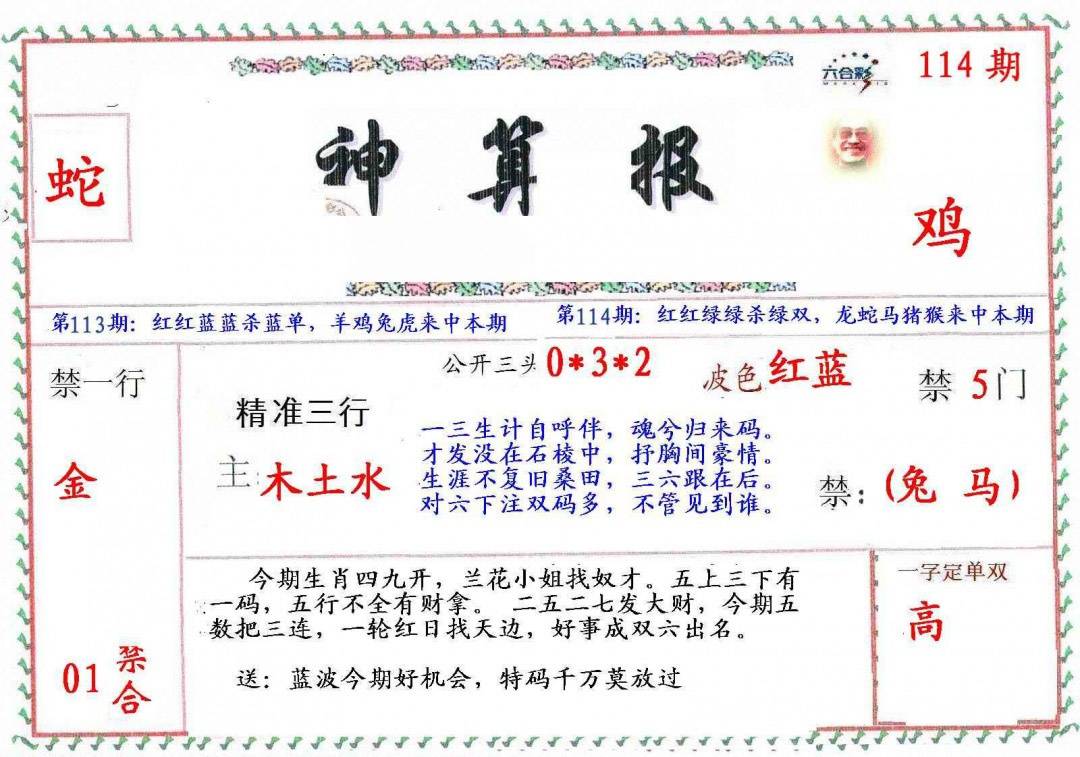 六合彩
114 期
蛇
神算报
鸡
第113期：红红蓝蓝杀蓝单，羊鸡兔虎来中本期
第114期：红红绿绿杀绿双，龙蛇马猪猴来中本期
禁一行
金
01 禁合
公开三头 0*3*2
波色 红蓝
禁 5 门
精准三行
主：木土水
一三生计自呼伴，魂兮归来码。
才发没在石棱中，抒胸间豪情。
生涯不复旧桑田，三六跟在后。
对六下注双码多，不管见到谁。
禁：（兔 马）
今期生肖四九开，兰花小姐找奴才。五上三下有
一码，五行不全有财拿。 二五二七发大财，今期五
数把三连，一轮红日找天边，好事成双六出名。
送：蓝波今期好机会，特码千万莫放过
一字定单双
高